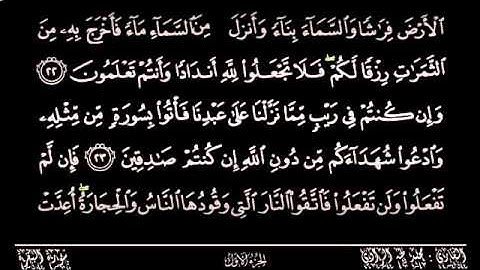 ٱلْأَرْضَ فِرَٰشًا وَٱلسَّمَآءَ بِنَآءً وَأَنزَلَ مِنَ ٱلسَّمَآءِ مَآءً فَأَخْرَجَ بِهِۦ مِنَ
ٱلثَّمَرَٰتِ رِزْقًا لَّكُمْ ۖ فَلَا تَجْعَلُوا۟ لِلَّهِ أَندَادًا وَأَنتُمْ تَعْلَمُونَ ٢٢
وَإِن كُنتُمْ فِى رَيْبٍ مِّمَّا نَزَّلْنَا عَلَىٰ عَبْدِنَا فَأْتُوا۟ بِسُورَةٍ مِّن مِّثْلِهِۦ
وَٱدْعُوا۟ شُهَدَآءَكُم مِّن دُونِ ٱللَّهِ إِن كُنتُمْ صَٰدِقِينَ ٢٣ فَإِن لَّمْ
تَفْعَلُوا۟ وَلَن تَفْعَلُوا۟ فَٱتَّقُوا۟ ٱلنَّارَ ٱلَّتِى وَقُودُهَا ٱلنَّاسُ وَٱلْحِجَارَةُ ۖ أُعِدَّتْ
سورة البقرة الجزء الأول القارئ :